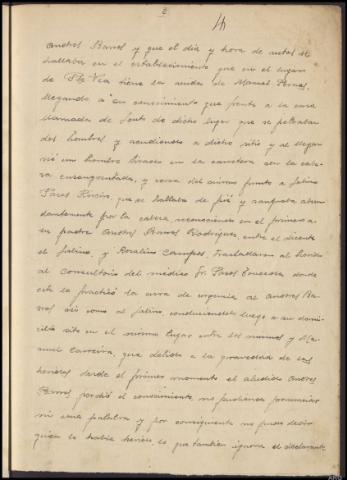 4
Andres Barros y que el dia y hora de autos se
hallaba en el establecimiento que en el lugar
de Pte Vea tiene la viuda de Manuel Pernas,
llegando a su conocimiento que frente a la casa
llamada de Souto de dicho lugar que se peleaban
dos hombres y acudiendo a dicho sitio y al llegar
vió un hombre tirado en la carretera con la cabe
za ensangrentada, y cerca del mismo punto a Jalino
Pazos que se hallaba de pié y sangraba abun
dantemente por la cabeza, reconociendo en el primero a
su padre Andres Barros Rodriguez, entre el dicente
el Jalino, y Rosalino Campos, trasladaron al herido
al consultorio del médico Sr. Pazos donde
este le practicó la cura de urgencia al Andres Ba
rros así como al Jalino, conduciendole luego a su domi
cilio sito en el mismo lugar entre los mismos y Ma
nuel Carreira, que debido a la gravedad de las
heridas desde el primer momento el aludido Andres
Barros perdió el conocimiento, no pudiendo pronunciar
ni una palabra y por consiguiente no puede decir
quien le habia herido lo que tambien ignora el declarante